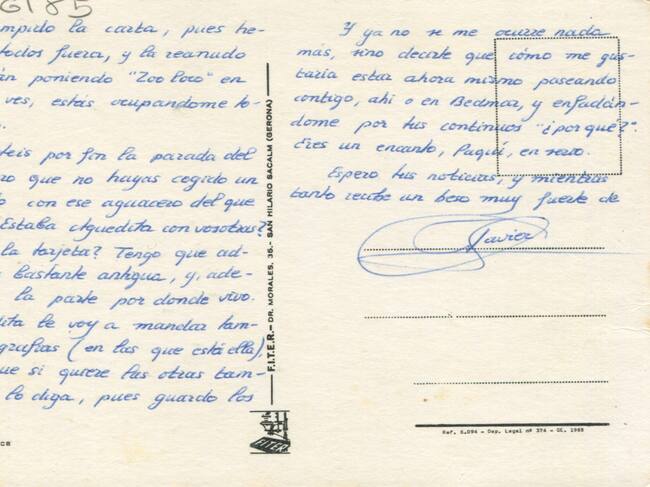 G185
mpido la carta, pues he-
todos fuera, y la reanudo
án poniendo "Zoo loco" en
ves, estás ocupandome to-
teis por fin la parada del
ro que no hayas cogido un
o con ese aguacero del que
Estaba Aguedita con vosotras?
la tarjeta? Tengo que ad-
bastante antigua, y, ade-
la parte por donde vivo.
dita le voy a mandar tam-
grafias (en las que está ella),
ue si quiere las otras tam-
lo diga, pues guardo los
F.I.T.E.R.- DR. MORALES, 35.- SAN HILARIO SACALM (GERONA)
FITER
Y ya no se me ocurre nada
más, sino decirte que cómo me gus-
taria estar ahora mismo paseando
contigo, ahi o en Bedmar, y enfadán-
dome por tus continuos "¿por qué?".
Eres un encanto, Paqui, en serio.
Espero tus noticias, y mientras
tanto recibe un beso muy fuerte de
Javier
Ref. 5.094 - Dep. Legal nº 374 - GE. 1968